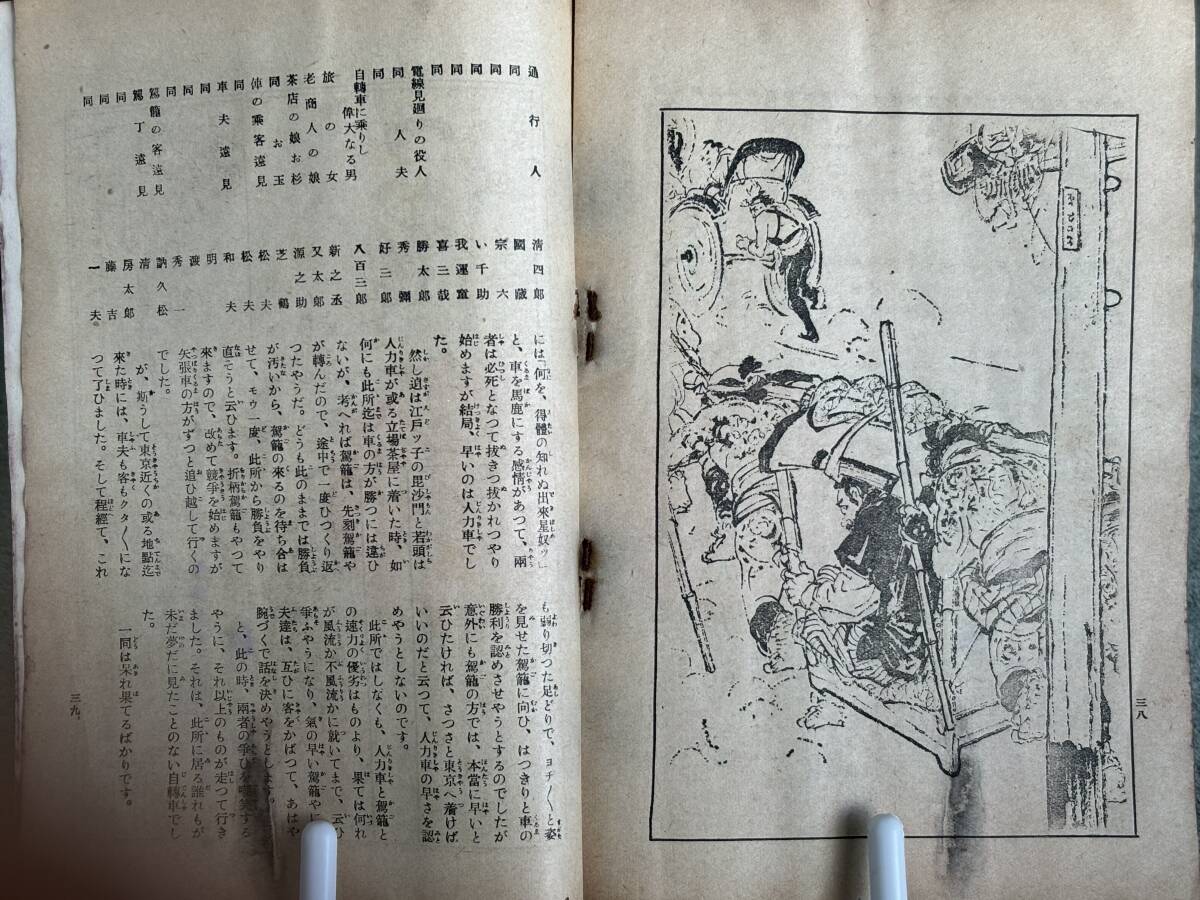 三八
通行人 清四郎
同 國藏
同 宗六
同 い千助
同 我運童
同 喜三哉
電線見廻りの役人 勝太郎
同 人夫 秀彌
同 好三郎
自轉車に乗りし偉大なる男 八百三郎
旅の女 新之丞
老商人の娘 又太郎
茶店の娘お杉 源之助
同 お玉 芝鶴
俥の乘客遠見 松夫
同 松夫
車夫遠見 和夫
同 明
同 渡
同 秀一
駕籠の客遠見 訥久松
駕丁遠見 清
同 房太郎
同 藤吉
同 一夫。
には何を、得體の知れぬ出來星奴ッ」
と、車を馬鹿にする感情があつて、兩
者は必死となつて抜きつ抜かれつやり
始めますが結局、早いのは人力車でし
た。
然し追は江戸ッ子の毘沙門と若頭は
人力車が或る立場茶屋に着いた時、如
何にも此所迄は車の方が勝つには違ひ
ないが、考へれば駕籠は、先刻駕籠や
が轉んだので、途中で一度ひつくり返
つたやうだ。どうも此のままでは勝負
が汚いから、駕籠の來るのを待ち合は
せて、モウ一度、此所から勝負をやり
直てうと云ひます。折柄駕籠もやつて
來ますので、改めて競爭を始めますが
矢張車の方がずつと追ひ越して行くの
でした。
が、斯うして東京近くの或る地點迄
來た時には、車夫も客もクタ〱にな
つて了ひました。そして程經て、これ
も弱り切つた足どりで、ヨチ〱と姿
を見せた駕籠に向ひ、はつきりと車の
勝利を認めさせやうとするのでしたが
意外にも駕籠の方では、本當に早いと
云ひたければ、さつさと東京へ着けば
いいのだと云つて、人力車の早さを認
めやうとしないのです。
此所ではしなくも、人力車と駕籠と
の速力の優劣はものより、果ては何れ
が風流か不風流かに就いてまで、云ひ
爭ふやうになり、氣の早い駕籠やに車
夫達は、互ひに客をかばつて、あはや
腕づくで話を決めやうとします。
と、此の時、兩者の爭ひを嘲笑する
やうに、それ以上のものが走つて行き
ました。それは、此所に居る誰れもが
未だ夢だに見たことのない自轉車でし
た。
一同は呆れ果てるばかりです。
三九